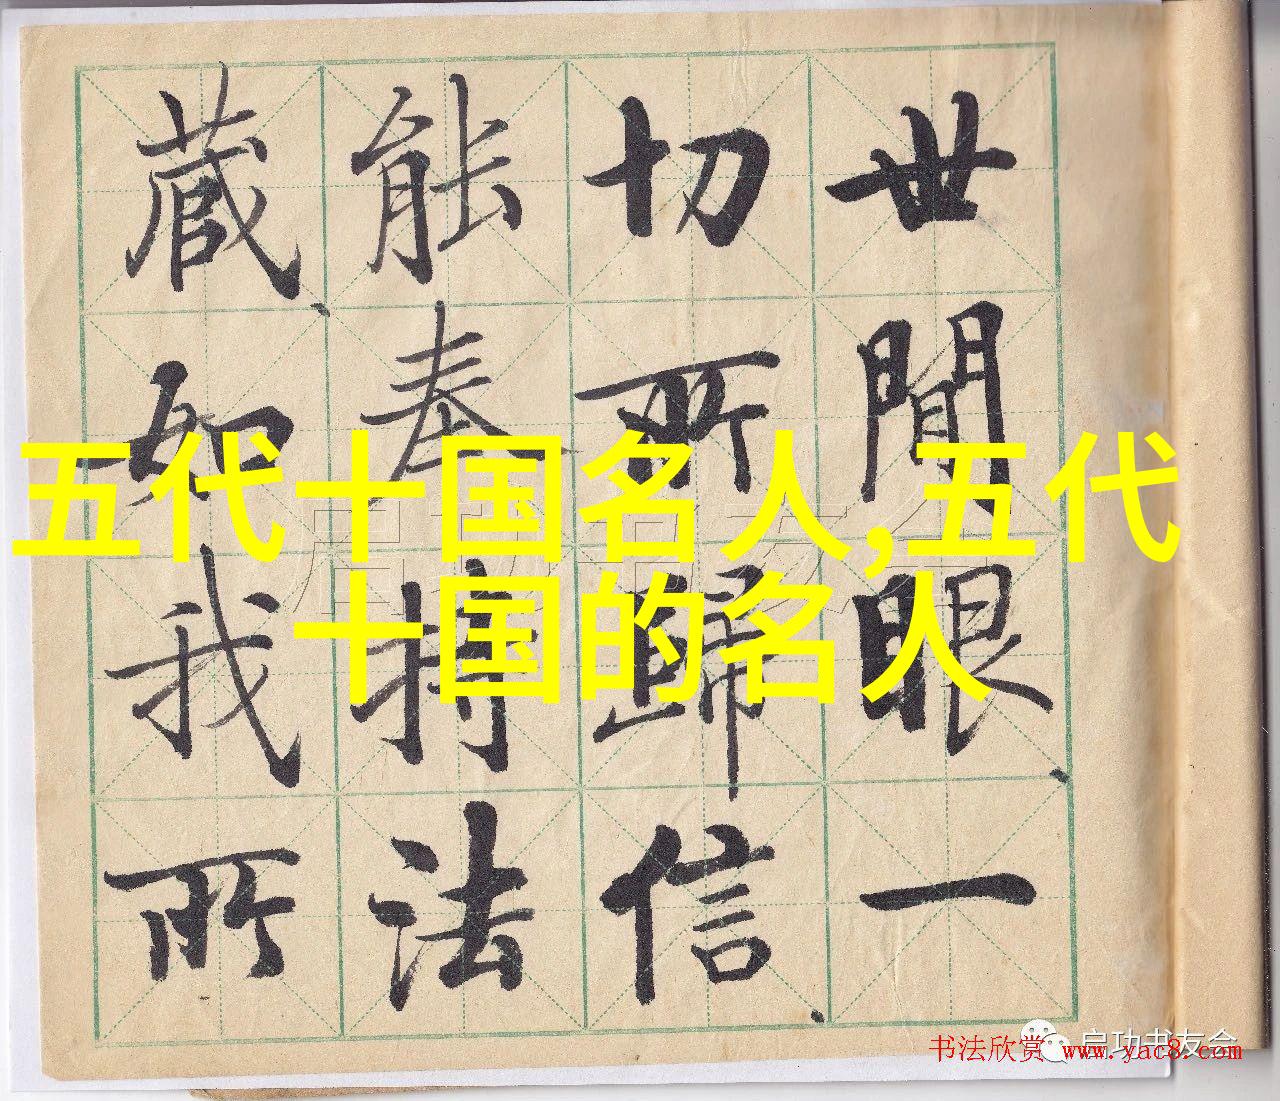 世間眼一
切所歸信
能奉持法
藏如我所
五代十国名人,五代
十国的名人
启功书友会
启功书友会
书法欣赏 www.yac8.com